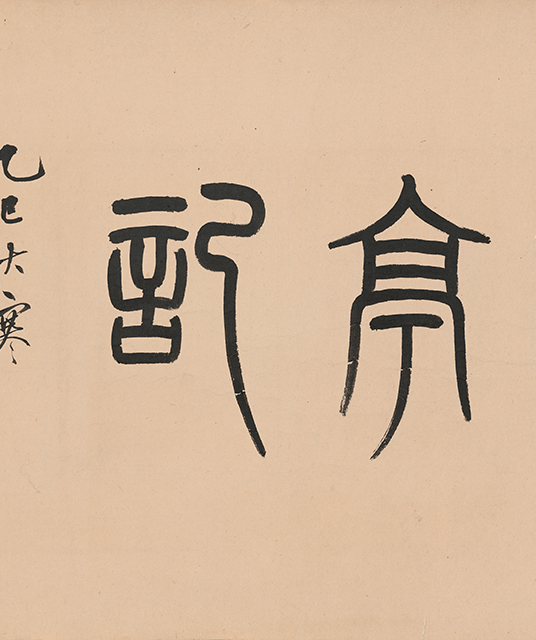 亭
記
乙巳大寒